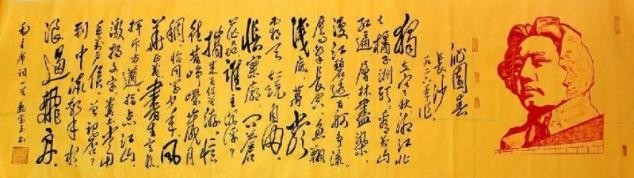 沁园春
长沙
独立寒秋湘江北
去橘子洲头看万山
红遍层林尽染
漫江碧透百舸争流
鹰击长空鱼翔
浅底万类
霜天竞自由
怅寥廓问苍
茫大地谁主沉浮
携来百侣曾游忆
往昔峥嵘岁月
稠恰同学少年风
华正茂书生意气
挥斥方遒指点江山
激扬文字粪土当年
万户侯曾记否
到中流击水
浪遏飞舟
毛主席词一首